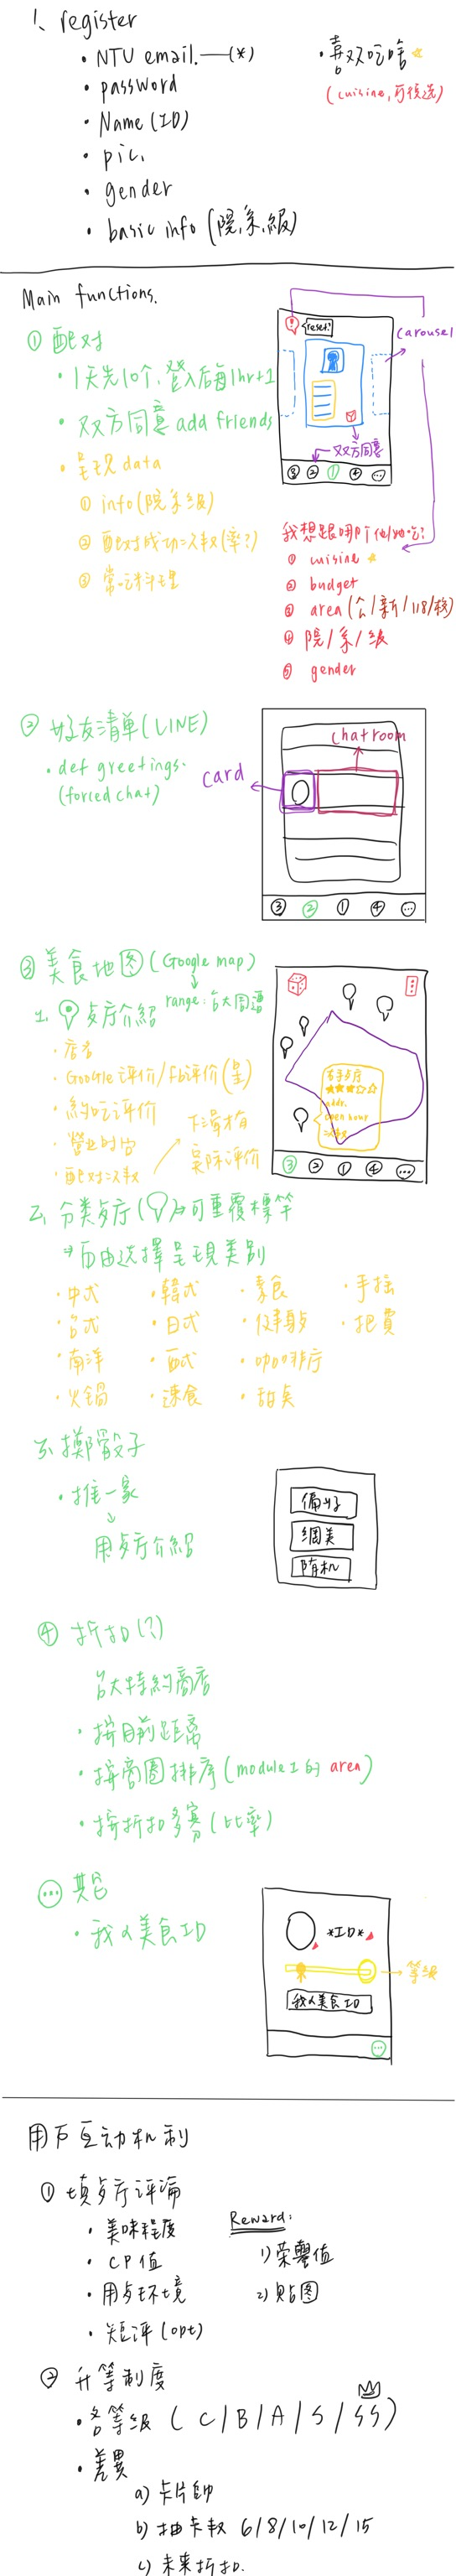 1. register
• NTU email.—(*)
• password
• Name (ID)
• pic.
• gender
• basic info (院,系,級)
• 喜欢吃啥☆
(cuisine, 可複选)
Main functions.
① 配对
• 1天先10个, 登入后每1hr+1
• 双方同意 add friends
• 呈現 data
① info (院系級)
② 配对成功次数(率?)
③ 常吃料理
reset?
carousel
双方同意
③ ② ① ④ …
我想跟哪个他/她吃?
① cuisine ☆
② budget
③ area (公/新/118/校)
④ 院/系/級
⑤ gender
② 好友清单(LINE)
• def greetings.
(forced chat)
card
chatroom
③ ② ① ④ …
③ 美食地图 (Google map)
range: 台大周邊
1. 歺厅介紹
• 店名
• Google 评价/Fb评价(星)
• 約吃评价
• 營业时间
• 配对次数
下滑有
实际评价
歺厅
★★★☆☆
addr.
open hour
次数
③ ② ① ④ …
2. 分类歺厅 ( ) 可重覆標竿
自由选擇呈現类别
• 中式
• 韓式
• 素食
• 手搖
• 台式
• 日式
• 健康歺
• 南洋
• 西式
• 咖啡厅
• 火鍋
• 速食
• 甜点
3. 擲骰子
• 推一家
用歺厅介紹
偏好
網美
隨机
④ 折扣(?)
台大特約商店
• 按目前距離
• 按商圈排序 (module 1 的 area)
• 按折扣多寡 (比率)
… 其它
• 我の美食ID
*ID*
等級
我の美食ID
…
用戶互动机制
① 填歺厅评論
• 美味程度
• CP值
• 用歺环境
• 短评 (opt)
Reward:
1) 荣譽值
2) 貼图
② 升等制度
• 各等級 ( C/B/A/S/SS )
• 差異
a) 卡片帥
b) 抽卡数 6/8/10/12/15
c) 未来折扣.